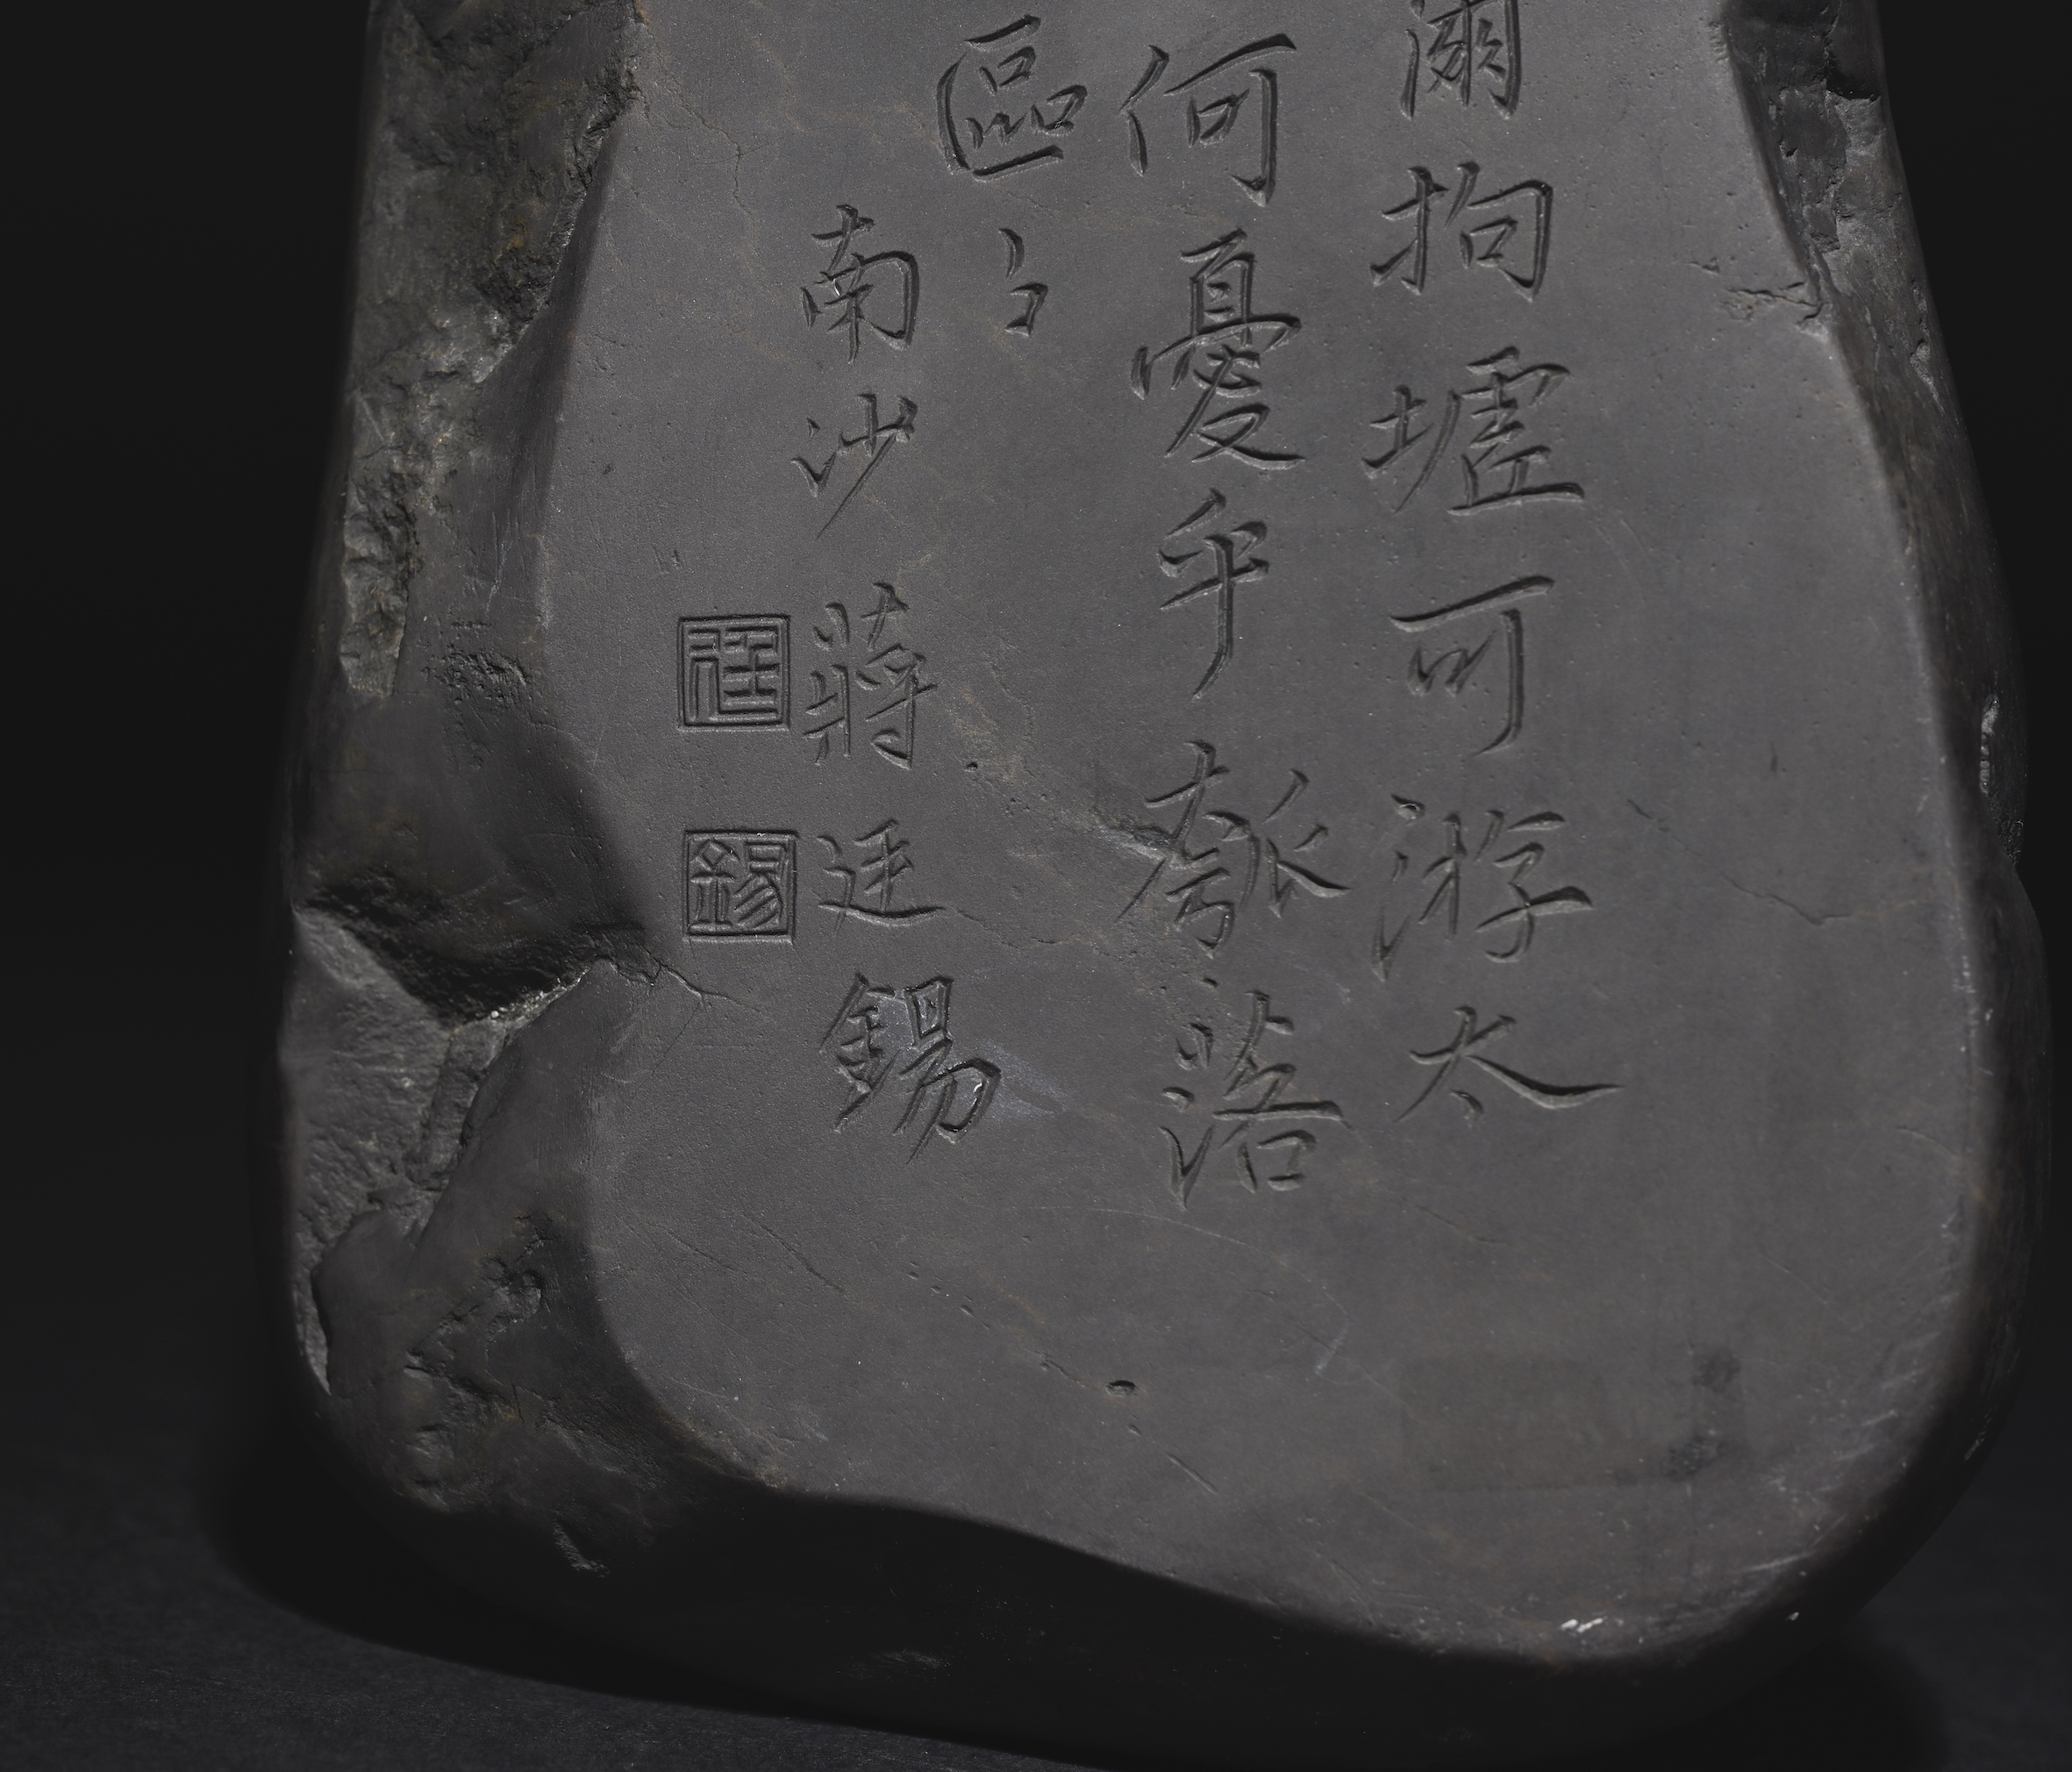 爾拘墟可游太
何憂乎瓠落
區〻
南沙蔣廷錫
廷
錫